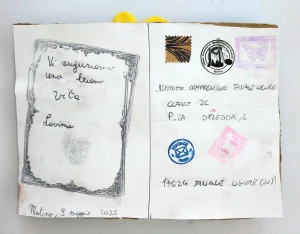 Vi auguriamo
una buona
vita
Lavinia
Molino, 9 maggio 2025
ISTITUTO COMPRENSIVO FINALE LIGURE
CLASSE 2C
P.ZA DELEDDA, 2
17024 FINALE LIGURE (SV)